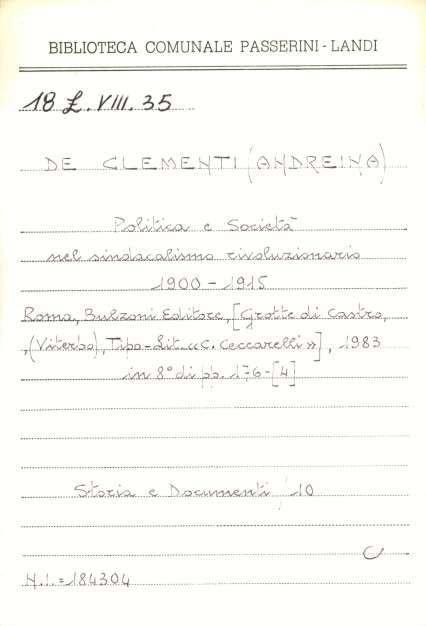 BIBLIOTECA COMUNALE PASSERINI - LANDI
18 L. VIII. 35
DE CLEMENTI (ANDREINA)
Politica e Società
nel sindacalismo rivoluzionario
1900 - 1915
Roma, Bulzoni Editore, [Grotte di Castro,
, (Viterbo), Tipo-Lit. «C. Ceccarelli»], 1983
in 8° di pp. 176-[4]
Storia e Documenti / 10
C
N.I. = 184304